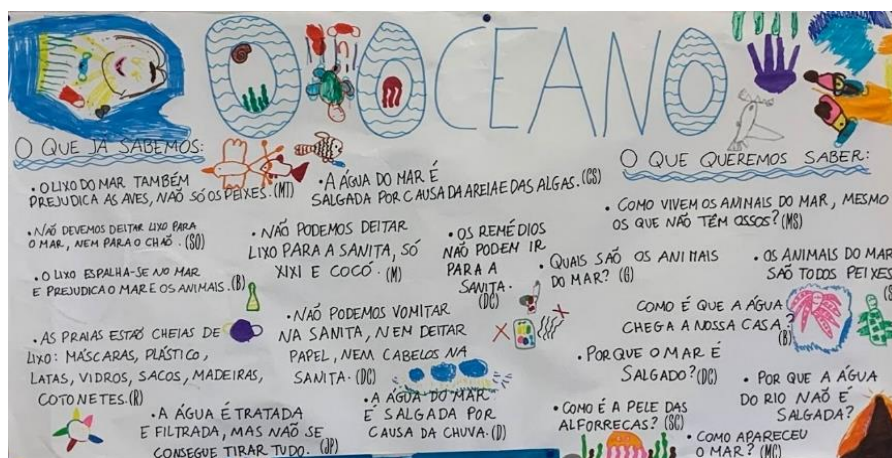 O OCEANO
O QUE JÁ SABEMOS:
• O LIXO DO MAR TAMBÉM
PREJUDICA AS AVES, NÃO SÓ OS PEIXES. (MT)
• NÃO DEVEMOS DEITAR LIXO PARA
O MAR, NEM PARA O CHÃO. (SO)
• O LIXO ESPALHA-SE NO MAR
E PREJUDICA O MAR E OS ANIMAIS. (B)
• AS PRAIAS ESTÃO CHEIAS DE
LIXO: MÁSCARAS, PLÁSTICO,
LATAS, VIDROS, SACOS, MADEIRAS,
COTONETES. (R)
• A ÁGUA É TRATADA
E FILTRADA, MAS NÃO SE
CONSEGUE TIRAR TUDO. (JP)
• A ÁGUA DO MAR É
SALGADA POR CAUSA DA AREIA E DAS ALGAS. (CS)
• NÃO PODEMOS DEITAR
LIXO PARA A SANITA, SÓ
XIXI E COCÓ. (M)
• OS REMÉDIOS
NÃO PODEM IR
PARA A
SANITA. (DC)
• NÃO PODEMOS VOMITAR
NA SANITA, NEM DEITAR
PAPEL, NEM CABELOS NA
SANITA. (DC)
• A ÁGUA DO MAR
É SALGADA POR
CAUSA DA CHUVA. (D)
O QUE QUEREMOS SABER:
• COMO VIVEM OS ANIMAIS DO MAR, MESMO
OS QUE NÃO TÊM OSSOS? (MS)
• QUAIS SÃO OS ANIMAIS
DO MAR? (G)
• OS ANIMAIS DO MAR
SÃO TODOS PEIXES
COMO É QUE A ÁGUA
CHEGA A NOSSA CASA? (B)
• PORQUE O MAR É
SALGADO? (DC)
• POR QUE A ÁGUA
DO RIO NÃO É
SALGADA?
• COMO É A PELE DAS
ALFORRECAS? (SC)
• COMO APARECEU
O MAR? (MC)